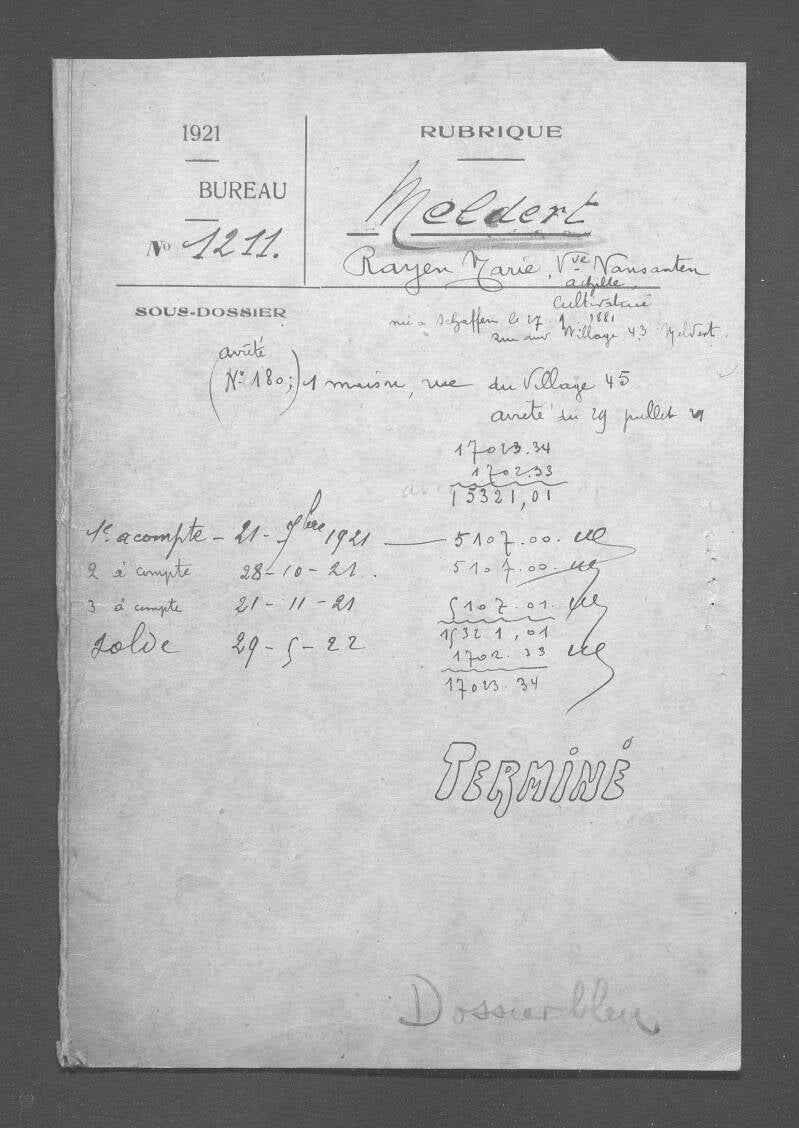 1921
BUREAU
No 1211.
RUBRIQUE
Meldert
Rayen Marie, Vve Vansanten
achille,
cultivateur
née à Schaffen le 27 1 1881
rue du Village 43 Meldert.
SOUS-DOSSIER
(arrêté
No 180;) 1 maison, rue du Village 45
arrêté du 29 juillet 21
17023.34
1702.33
15321,01
1e acompte - 21 - 7bre 1921 — 5107.00.
2 à compte 28-10-21. 5107.00.
3 à compte 21-11-21 5107.01.
15321,01
solde 29-5-22 1702.33
17023.34
TERMINÉ
Dossier bleu